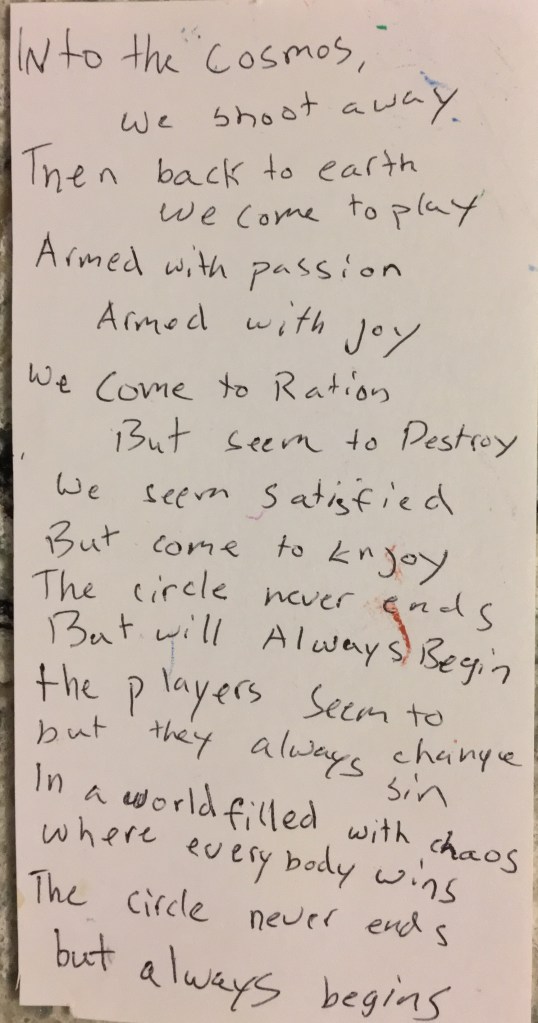 INto the Cosmos,
We shoot away
Then back to earth
We come to play
Armed with passion
Armed with joy
We Come to Ration
But seem to Destroy
We seem satisfied
But come to Enjoy
The circle never ends
But will Always Begin
the players seem to
but they always change
sin
In a world filled with chaos
where everybody wins
The circle never ends
but always begins